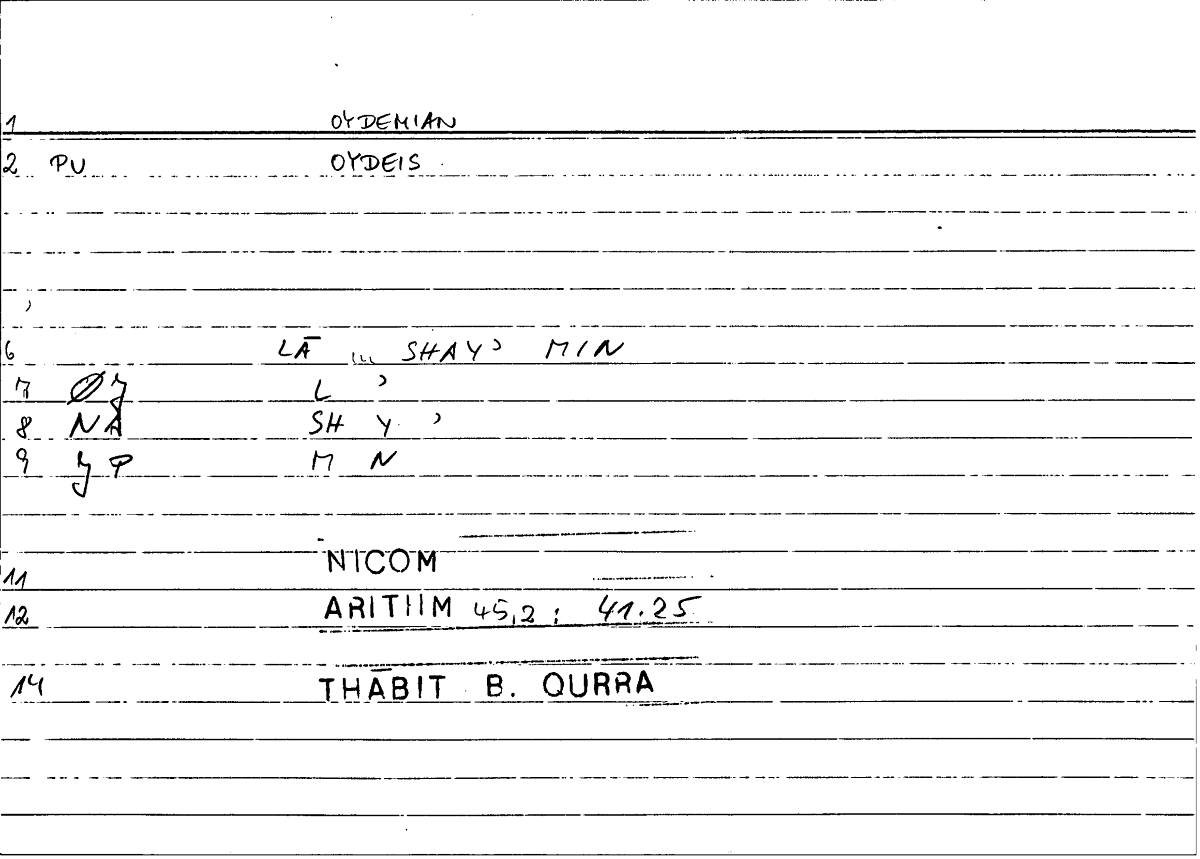 1 OYDEMIAN
2 PU OYDEIS
6 LĀ ... SHAY' MIN
7 L '
8 NA SH Y '
9 M N
11 NICOM
12 ARITHM 45,2 : 41.25
14 THĀBIT B. QURRA